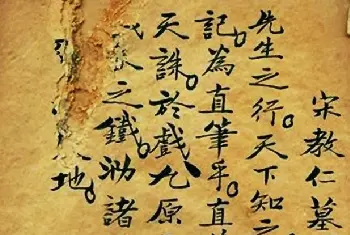 宋教仁墓
先生之行。天下知之。
記。為直筆乎。直
天誅。於戲。九原
之鐵。泐諸
地。